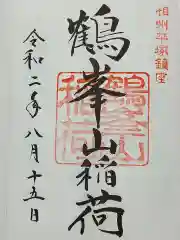 相州平塚鎮座
鶴峯山稲荷
令和二年八月十五日